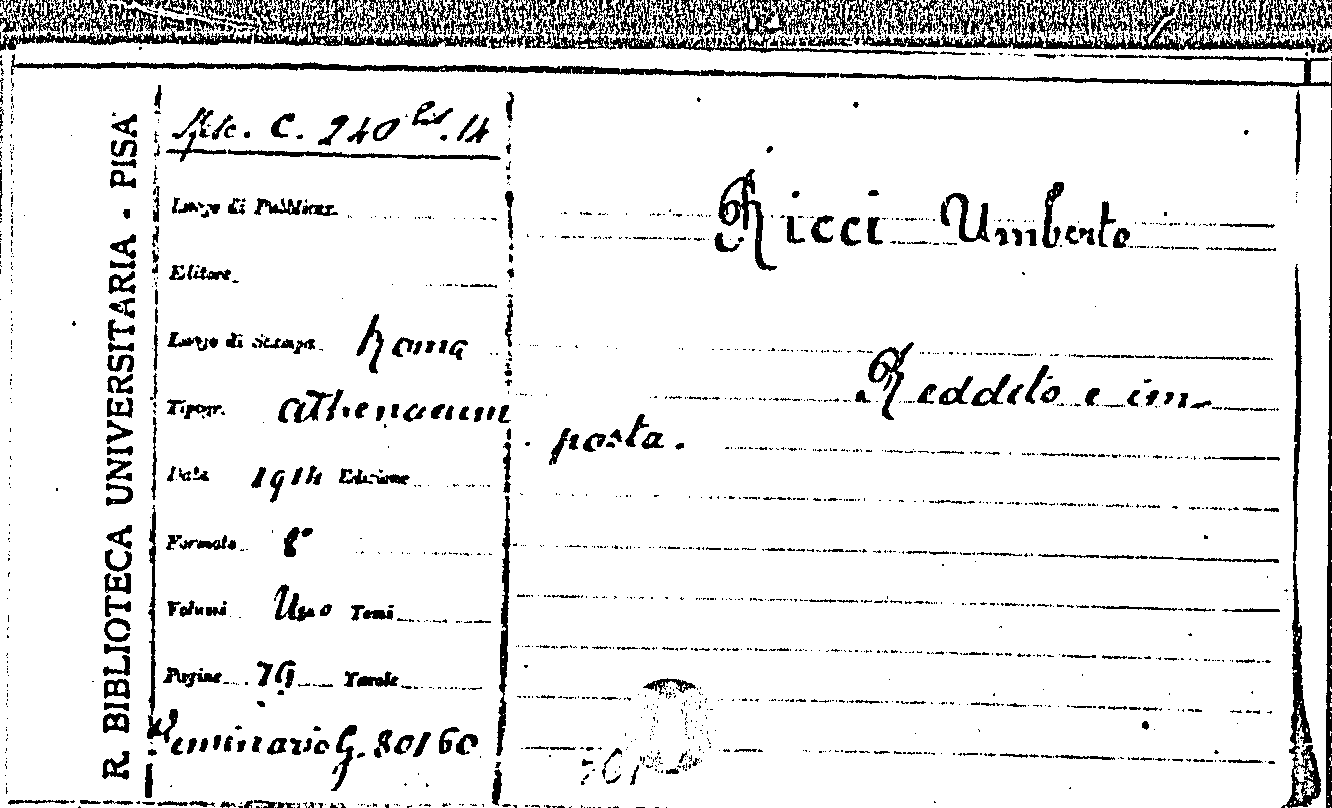 R. BIBLIOTECA UNIVERSITARIA - PISA
Misc. C. 240 bis. 14
Luogo di Pubblicaz.
Editore
Luogo di Stampa Roma
Tipogr. Athenaeum
Data 1914 Edizione
Formato 8°
Volumi Uno Tomi
Pagine 79 Tavole
Seminario G. 80/60
Ricci Umberto
Reddito e im-
posta.